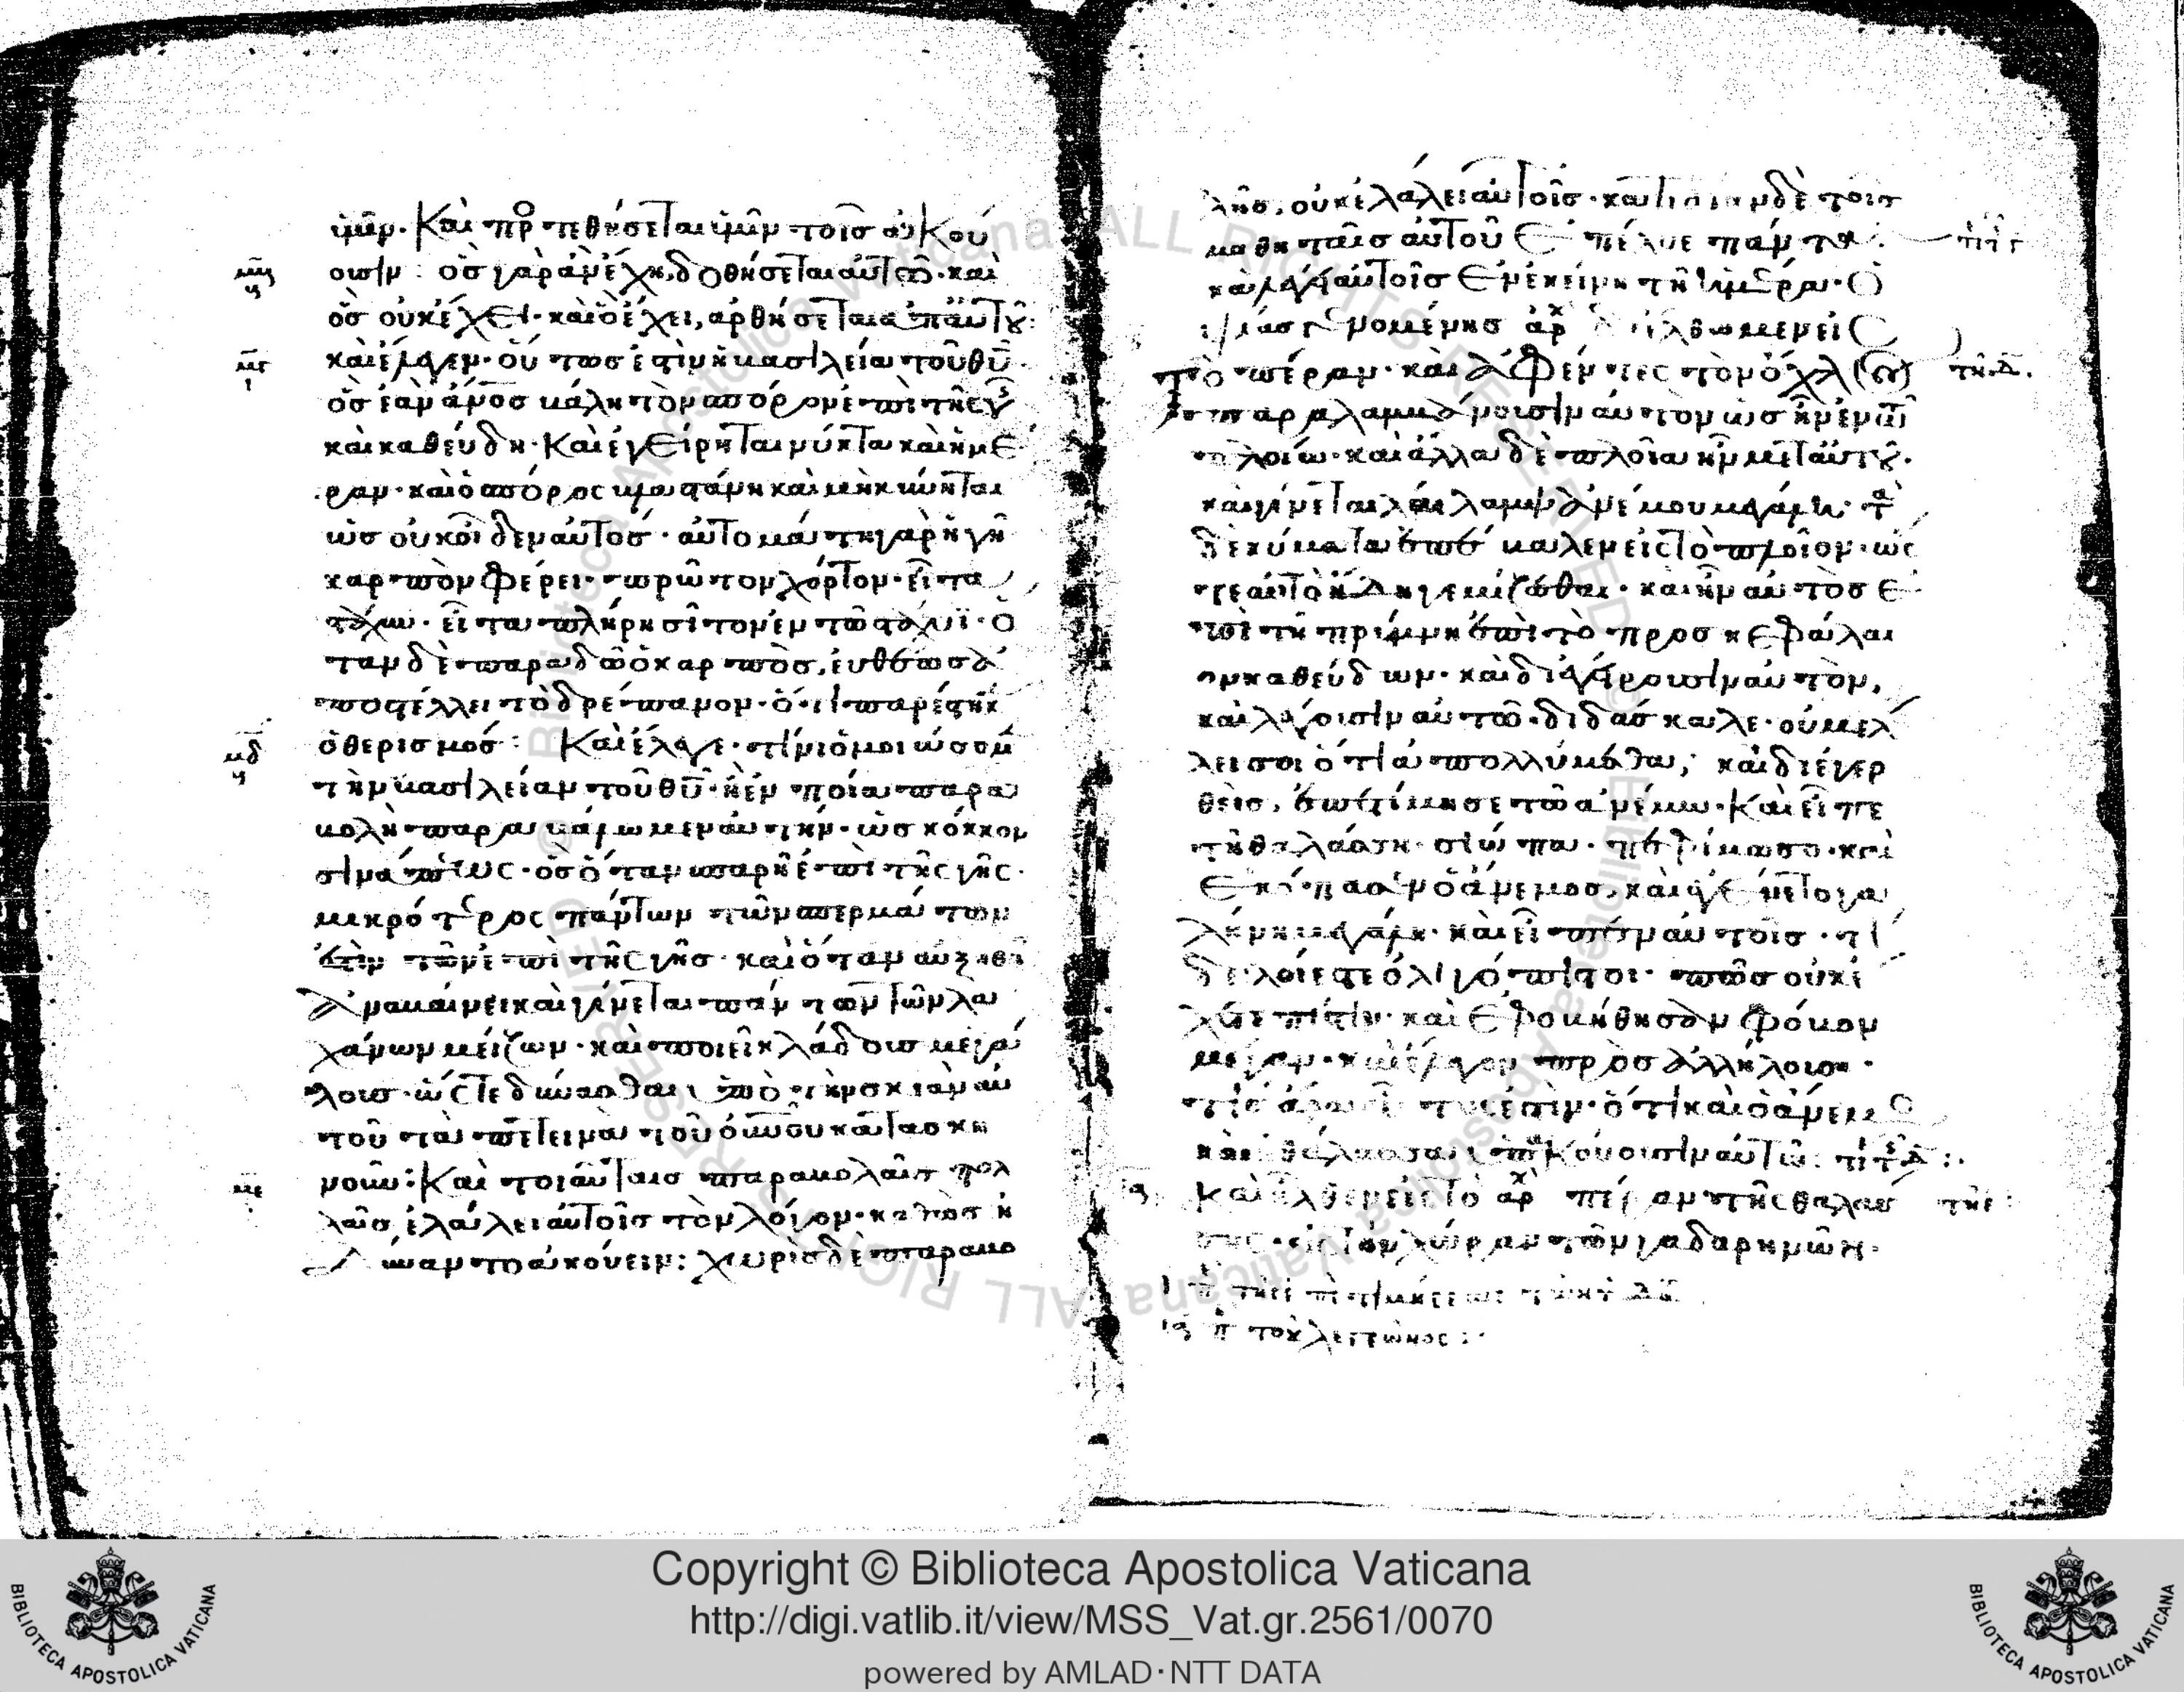 ὑμῖν· Καὶ προστεθήσεται ὑμῖν τοῖς ἀκού
ουσιν : ὃς γὰρ ἂν ἔχῃ, δοθήσεται αὐτῶ· καὶ
ὃς οὐκ ἔχει· καὶ ὃ ἔχει, ἀρθήσεται ἀπ αὐτοῦ:
καὶ ἔλεγεν· οὕτως ἐστὶν ἡ βασιλεία τοῦ θυ̅·
ὡς ἐὰν ἀνο̅ς βάλη τὸν σπόρον ἐπὶ τῆς γῆς
καὶ καθεύδη· Καὶ ἐγείρηται νύκτα καὶ ἡμέ
ραν· καὶ ὁ σπόρος βλαστάνη καὶ μηκύνηται
ὡς οὐκ οἶδεν αὐτός· αὐτομάτη γὰρ ἡ γῆ
καρπὸν φέρει· πρῶτον χόρτον· εἶτα
στάχυν· εἶτα πλήρη σῖτον ἐν τῶ στάχυϊ· ὅ
ταν δὲ παραδῶ ὁ καρπὸς, εὐθέως ἀ
ποστέλλει τὸ δρέπανον· ὅτι παρέστηκεν
ὁ θερισμός : Καὶ ἔλεγε· τίνι ὁμοιώσομεν
τὴν βασιλείαν τοῦ θυ̅· ἢ ἐν ποία παρα
βολῆ παραβάλωμεν αὐτήν· ὡς κόκκον
σινάπεως· ὃς ὅταν σπαρῆ ἐπὶ τῆς γῆς·
μικρότερος πάντων τῶν σπερμάτων
ἐστὶν τῶν ἐπὶ τῆς γῆς· καὶ ὅταν αὐξηθῆ
ἀναβαίνει καὶ γίνεται πάντων τῶν λα
χάνων μείζων· καὶ ποιεῖ κλάδους μεγά
λους· ὥστε δύνασθαι ὑπὸ τὴν σκιὰν αὐ
τοῦ τὰ πετεινὰ τοῦ οὐνου κατασκη
νοῦν : Καὶ τοιαύταις παραβολαῖς πολ
λαῖς ἐλάλει αὐτοῖς τὸν λόγον· καθὼς ἠ
δύναντο ἀκούειν : χωρὶς δὲ παραβο
λῆς, οὐκ ἐλάλει αὐτοῖς· κατιδίαν δὲ τοῖς
μαθηταῖς αὐτοῦ ἐπέλυε πάντα·
καὶ λέγει αὐτοῖς ἐν ἐκείνη τῆ ἡμέρα· ὀ
ψίας γενομένης διέλθωμεν εἰς
τὸ πέραν· καὶ ἀφέντες τὸν ὄχλον
παραλαμβάνουσιν αὐτὸν ὡς ἦν ἐν τῶ
πλοίω· καὶ ἄλλα δὲ πλοῖα ἦν μετ αὐτοῦ·
καὶ γίνεται λαίλαψ ἀνέμου μεγάλη· τὰ
δὲ κύματα ἐπέβαλεν εἰς τὸ πλοῖον· ὥς
τε αὐτὸ ἤδη γεμίζεσθαι· καὶ ἦν αὐτὸς ἐ
πὶ τῆ πρύμνη ἐπὶ τὸ προσκεφάλαι
ον καθεύδων· καὶ διεγείρουσιν αὐτὸν,
καὶ λέγουσιν αὐτῶ· διδάσκαλε· οὐ μέλ
λει σοι ὅτι ἀπολλύμεθα; καὶ διεγερ
θεὶς, ἐπετίμησε τῶ ἀνέμω· Καὶ εἶπε
τῆ θαλάσση· σιώπα· πεφίμωσο· καὶ
ἐκόπασεν ὁ ἄνεμος, καὶ ἐγένετο γα
λήνη μεγάλη· καὶ εἶπεν αὐτοῖς· τί
δειλοί ἐστε ὀλιγόπιστοι· πῶς οὐκ ἔ
χετε πίστιν· καὶ ἐφοβήθησαν φόβον
μέγαν· καὶ ἔλεγον πρὸς ἀλλήλους·
τίς ἄρα οὗτός ἐστιν· ὅτι καὶ ὁ ἄνεμος
καὶ ἡ θάλασσα ὑπακούουσιν αὐτῶ:
Καὶ ἦλθεν εἰς τὸ πέραν τῆς θαλάσ
σης· εἰς τὴν χώραν τῶν γαδαρηνῶν·
τοῦ λεγεῶνος :
Copyright © Biblioteca Apostolica Vaticana
http://digi.vatlib.it/view/MSS_Vat.gr.2561/0070
powered by AMLAD·NTT DATA
BIBLIOTECA APOSTOLICA VATICANA
BIBLIOTECA APOSTOLICA VATICANA